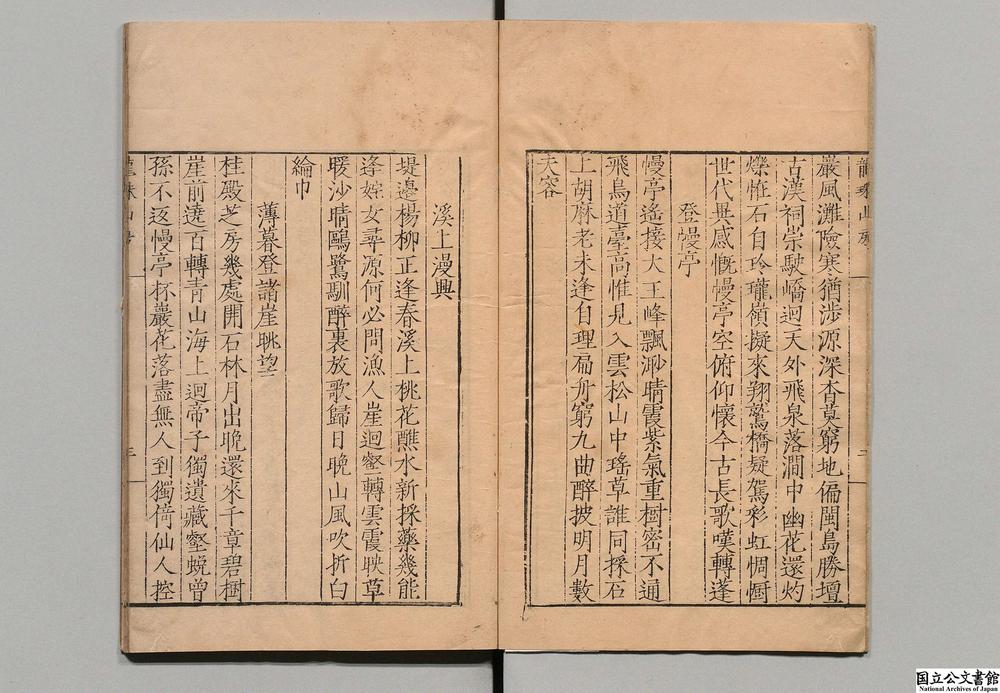 巖風灘險寒猶涉源深杳莫窮地偏閩島勝壇
古漢祠崇駛嶠迴天外飛泉落澗中幽花還灼
爍恠石自玲瓏嶺擬來翔鷲橋疑駕彩虹惆
世代異感慨幔亭空俯仰懷今古長歌嘆轉蓬
登幔亭
幔亭遙接大王峰飄渺晴霞紫氣重樹密不通
飛鳥道臺高惟見入雲松山中瑤草誰同採石
上胡麻老未逢自理扁舟窮九曲醉披明月數
夫容
溪上漫興
堤邊楊柳正逢春溪上桃花蘸水新採藥幾能
逢姹女尋源何必問漁人崖迴壑轉雲霞映草
暖沙晴鷗鷺馴醉裏放歌歸日晚山風吹折白
綸巾
薄暮登諸崖眺望
桂殿芝房幾處開石林月出晚還來千章碧樹
崖前遶百轉青山海上迴帝子獨遺藏壑蛻曾
孫不返幔亭杯巖花落盡無人到獨倚仙人控
三
国立公文書館
National Archives of Japan